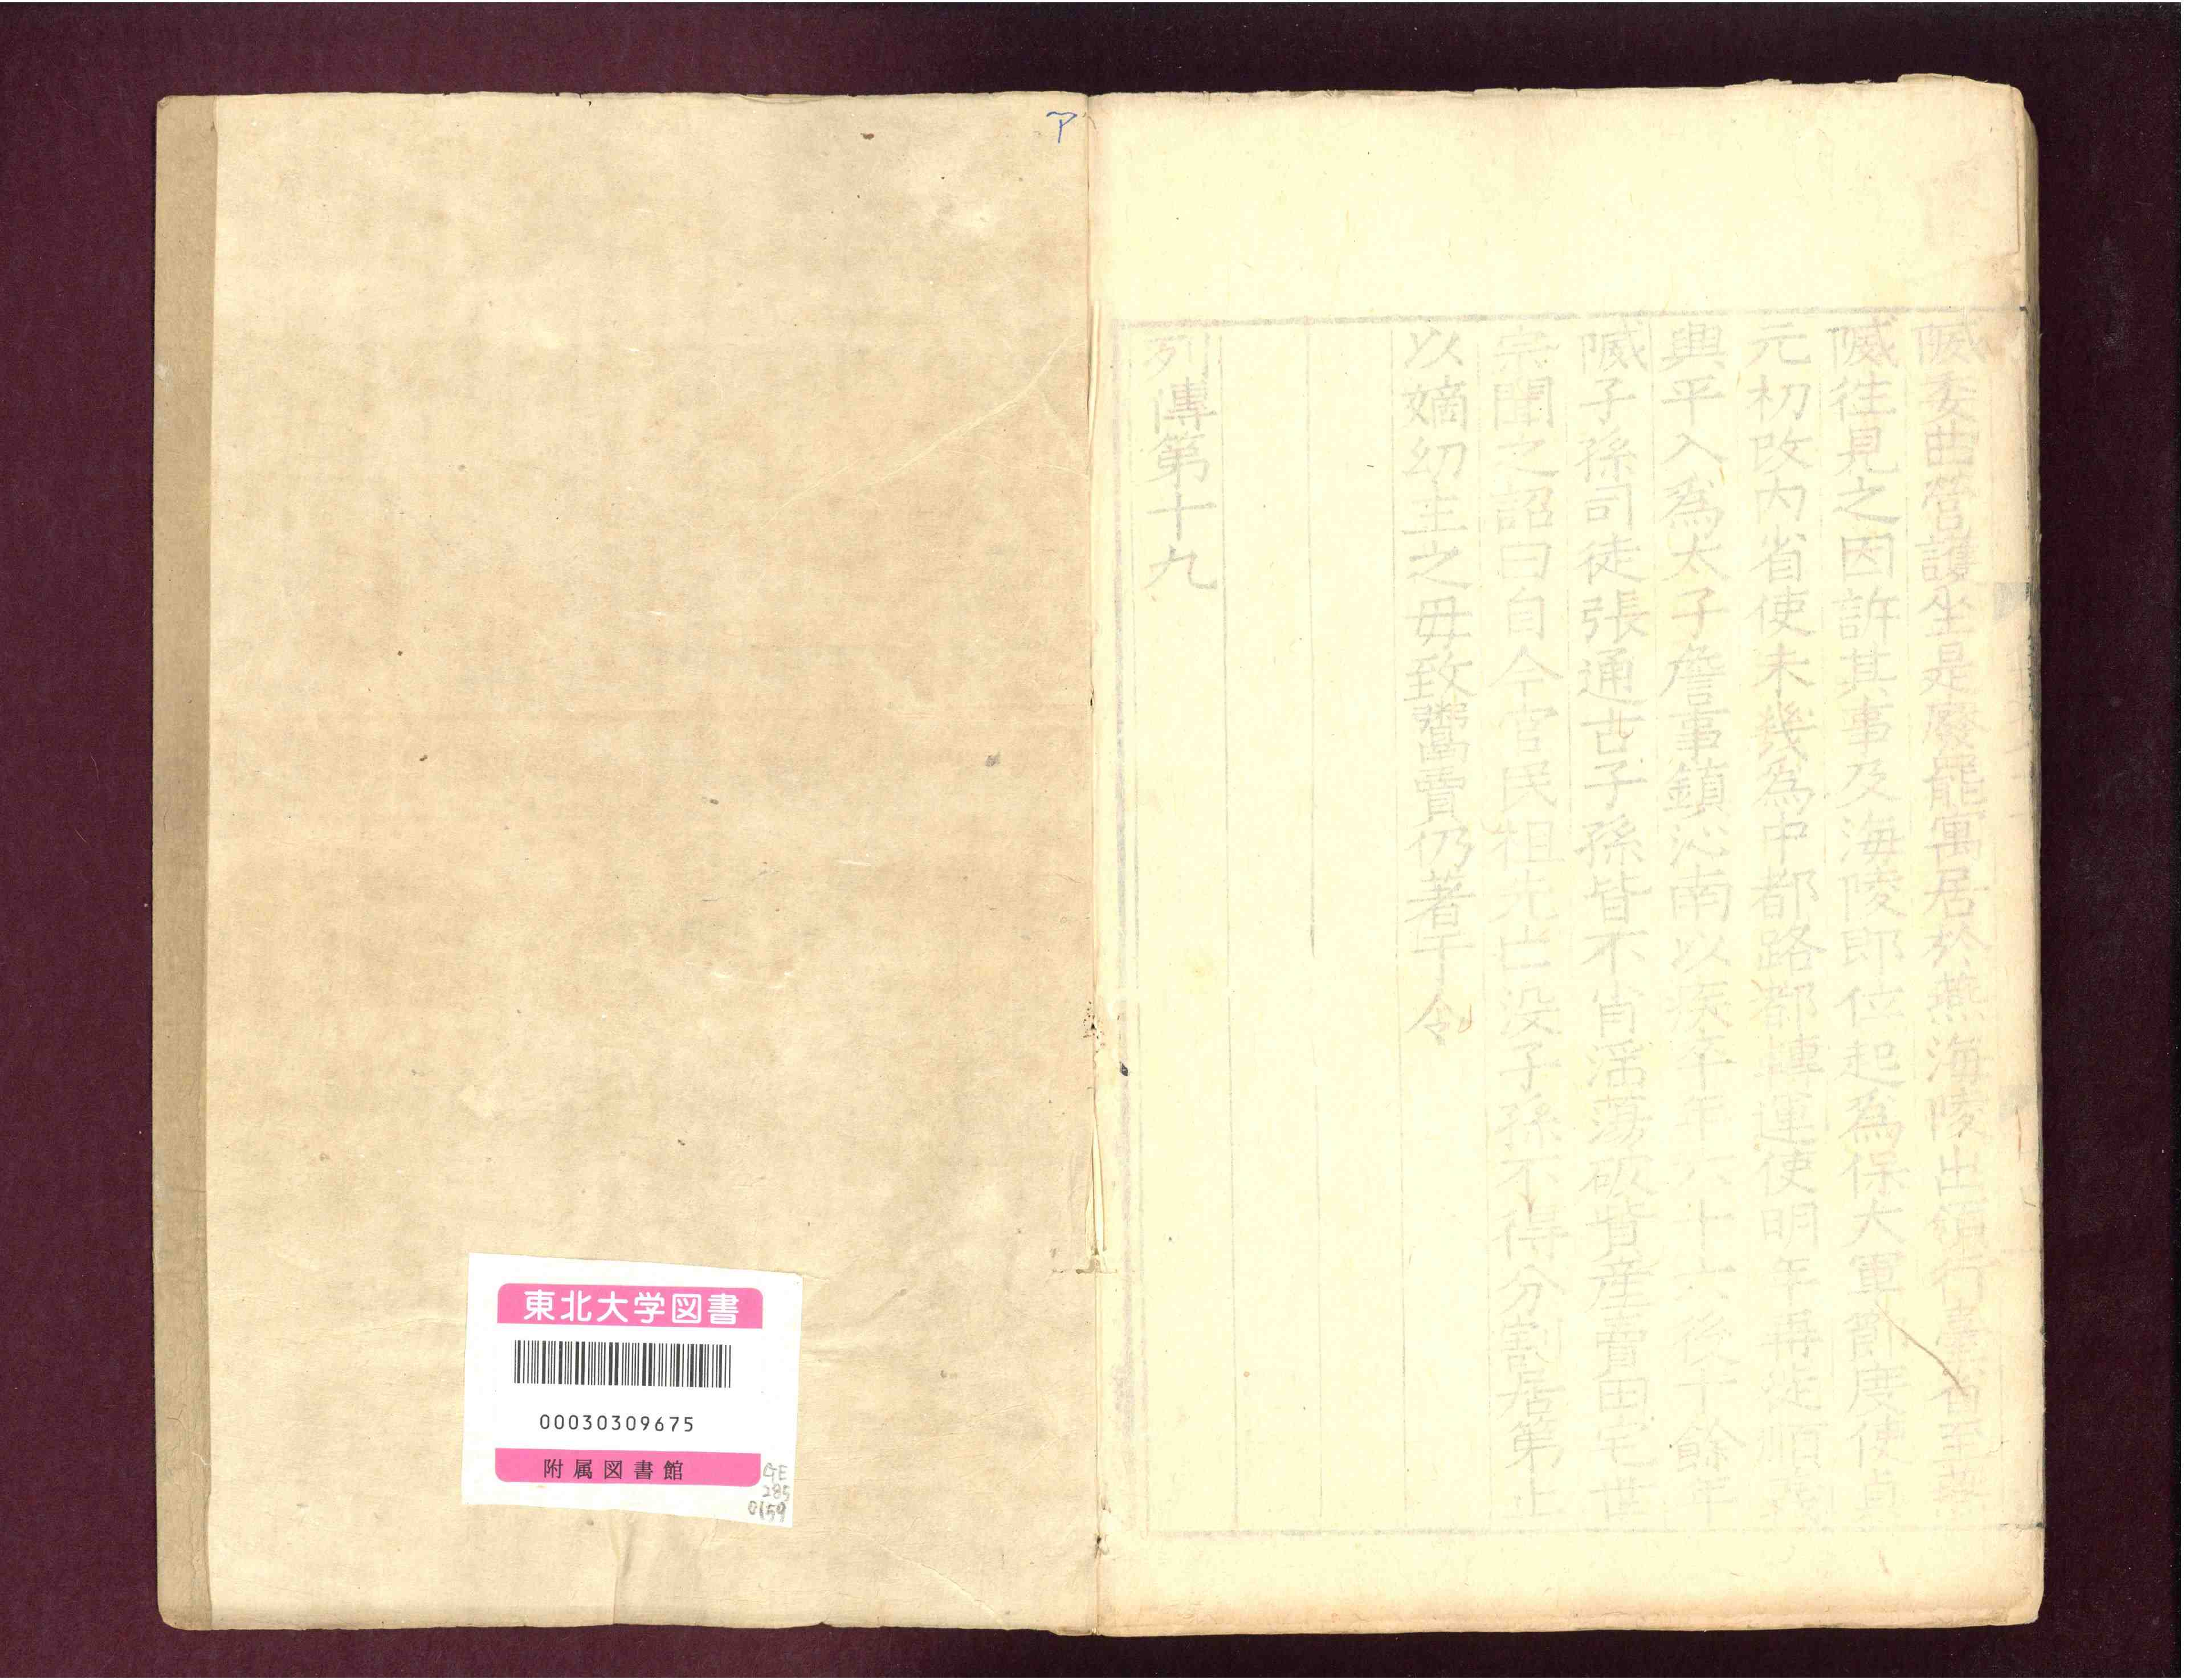 臧委曲營護坐是廢罷寓居於燕海陵出領行臺省至燕
臧往見之因許其事及海陵即位起爲保大軍節度使貞
元初改内省使未幾爲中都路都轉運使明年再從順義
興平入爲太子詹事鎮沁南以疾卒年六十六後十餘年
臧子孫司徒張通古子孫皆不肖滛蕩破貲産賣田宅世
宗聞之詔曰自今官民祖先亡没子孫不得分割居第止
以嫡幼主之毋致鬻賣仍著于令
列傳第十九
ア
東北大学図書
00030309675
附属図書館
GE
285
0159